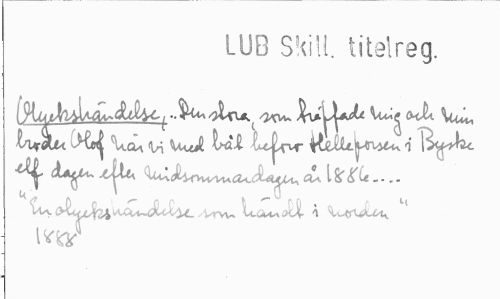 LUB Skill. titelreg.
Olyckshändelse, .. Den stora, som träffade mig och min
broder Olof när vi med båt beforo Helleforsen i Byske
elf dagen efter midsommardagen år 1886....
"En olyckshändelse som händt i norden"
1888